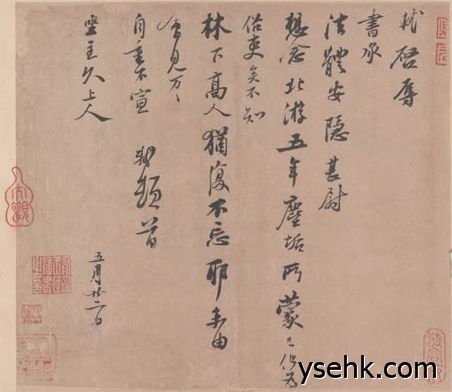 軾啓辱
書承
法體安隱甚尉
想念北游五年塵垢所蒙已化為
俗吏矣不知
林下高人猶復不忘耶未由
會見万万
自重不宣 軾頓首
坐主久上人
五月廿二日
ysehk.com